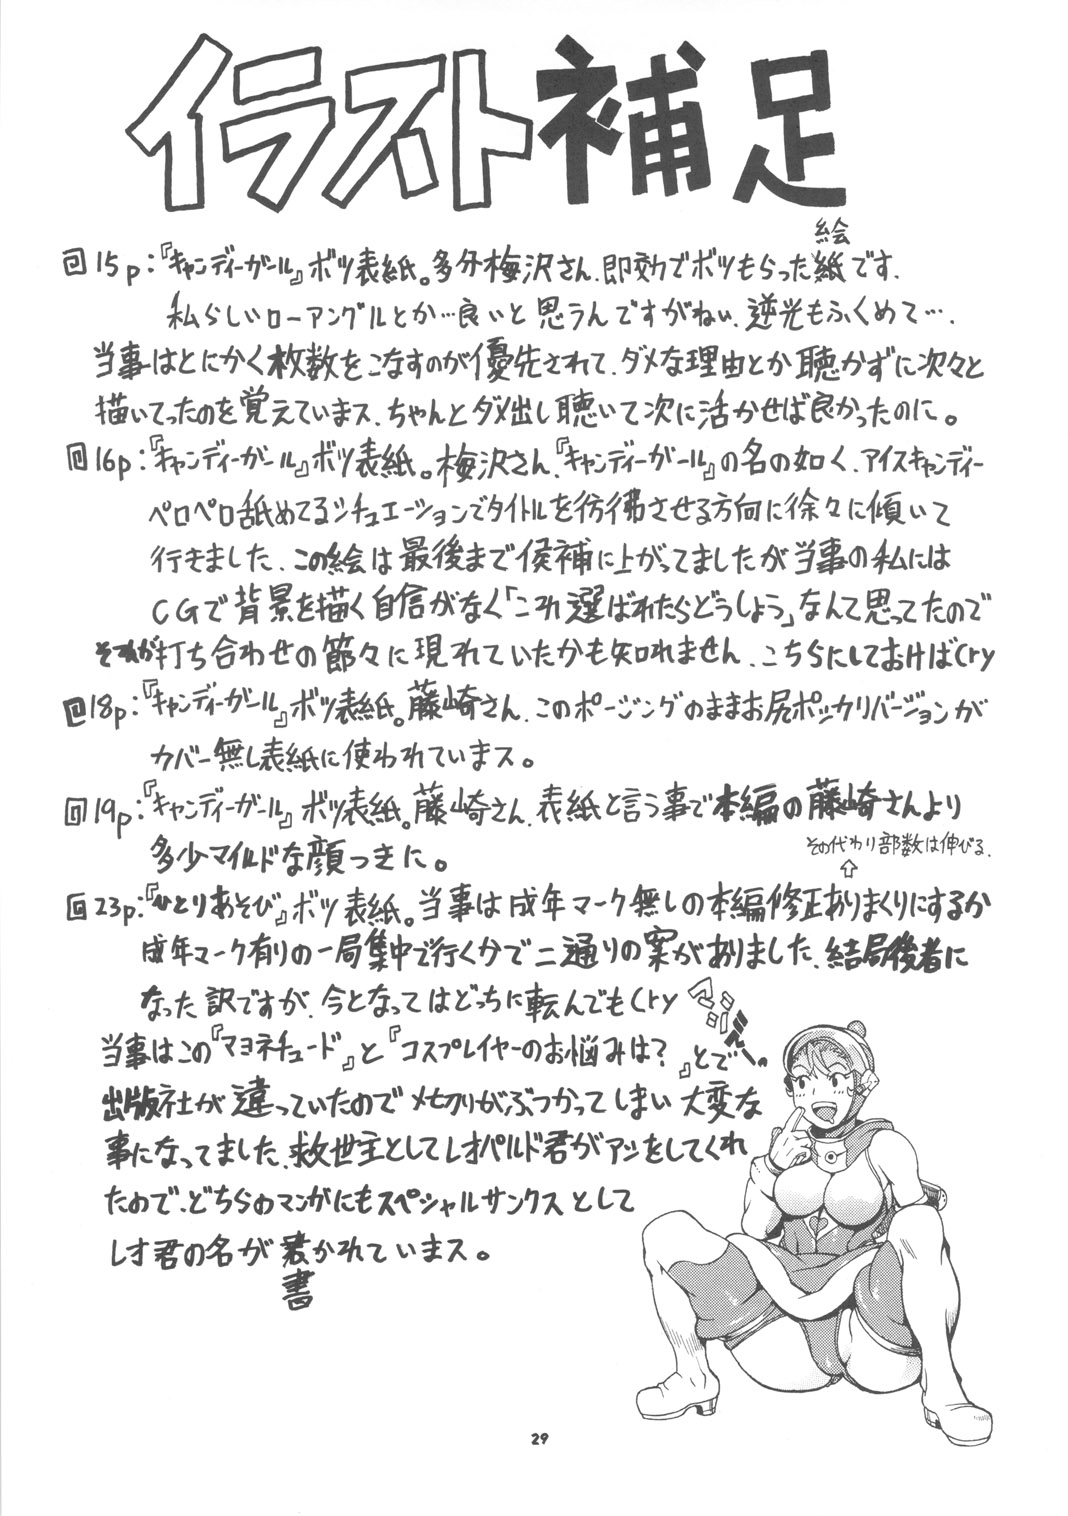 イラスト補足
15p:『キャンディーガール』ボツ表紙。多分梅沢さん、即効でボツもらった紙です、
絵
私らしいローアングルとか…良いと思うんですがねぃ、逆光もふくめて…、
当事はとにかく枚数をこなすのが優先されて、ダメな理由とか聴かずに次々と
描いてったのを覚えていまス、ちゃんとダメ出し聴いて次に活かせば良かったのに。
16p:『キャンディーガール』ボツ表紙。梅沢さん、『キャンディーガール』の名の如く、アイスキャンディー
ペロペロ舐めてるシチュエーションでタイトルを彷彿させる方向に徐々に傾いて
行きました、この絵は最後まで候補に上がってましたが当事の私には
CGで背景を描く自信がなく「これ選ばれたらどうしよう」なんて思ってたので
それが打ち合わせの節々に現れていたかも知れません、こちらにしておけばCry
18p:『キャンディーガール』ボツ表紙。藤崎さん、このポージングのままお尻ポッカリバージョンが
カバー無し表紙に使われていまス。
19p:『キャンディーガール』ボツ表紙。藤崎さん、表紙と言う事で本編の藤崎さんより
多少マイルドな顔つきに。
その代わり部数は伸びる、
23p:『ひとりあそび』ボツ表紙。当事は成年マーク無しの本編修正ありまくりにするか
成年マーク有りの一局集中で行くかで二通りの案がありました、結局後者に
なった訳ですが、今となってはどっちに転んでもCry
当事はこの『マヨネチュード』と『コスプレイヤーのお悩みは?』とで
出版社が違っていたのでメセクリがぶつかってしまい大変な
事になってました、救世主としてレオパルド君がアシをしてくれ
たので、どちらのマンガにもスペシャルサンクスとして
レオ君の名が書かれていまス。
書
29